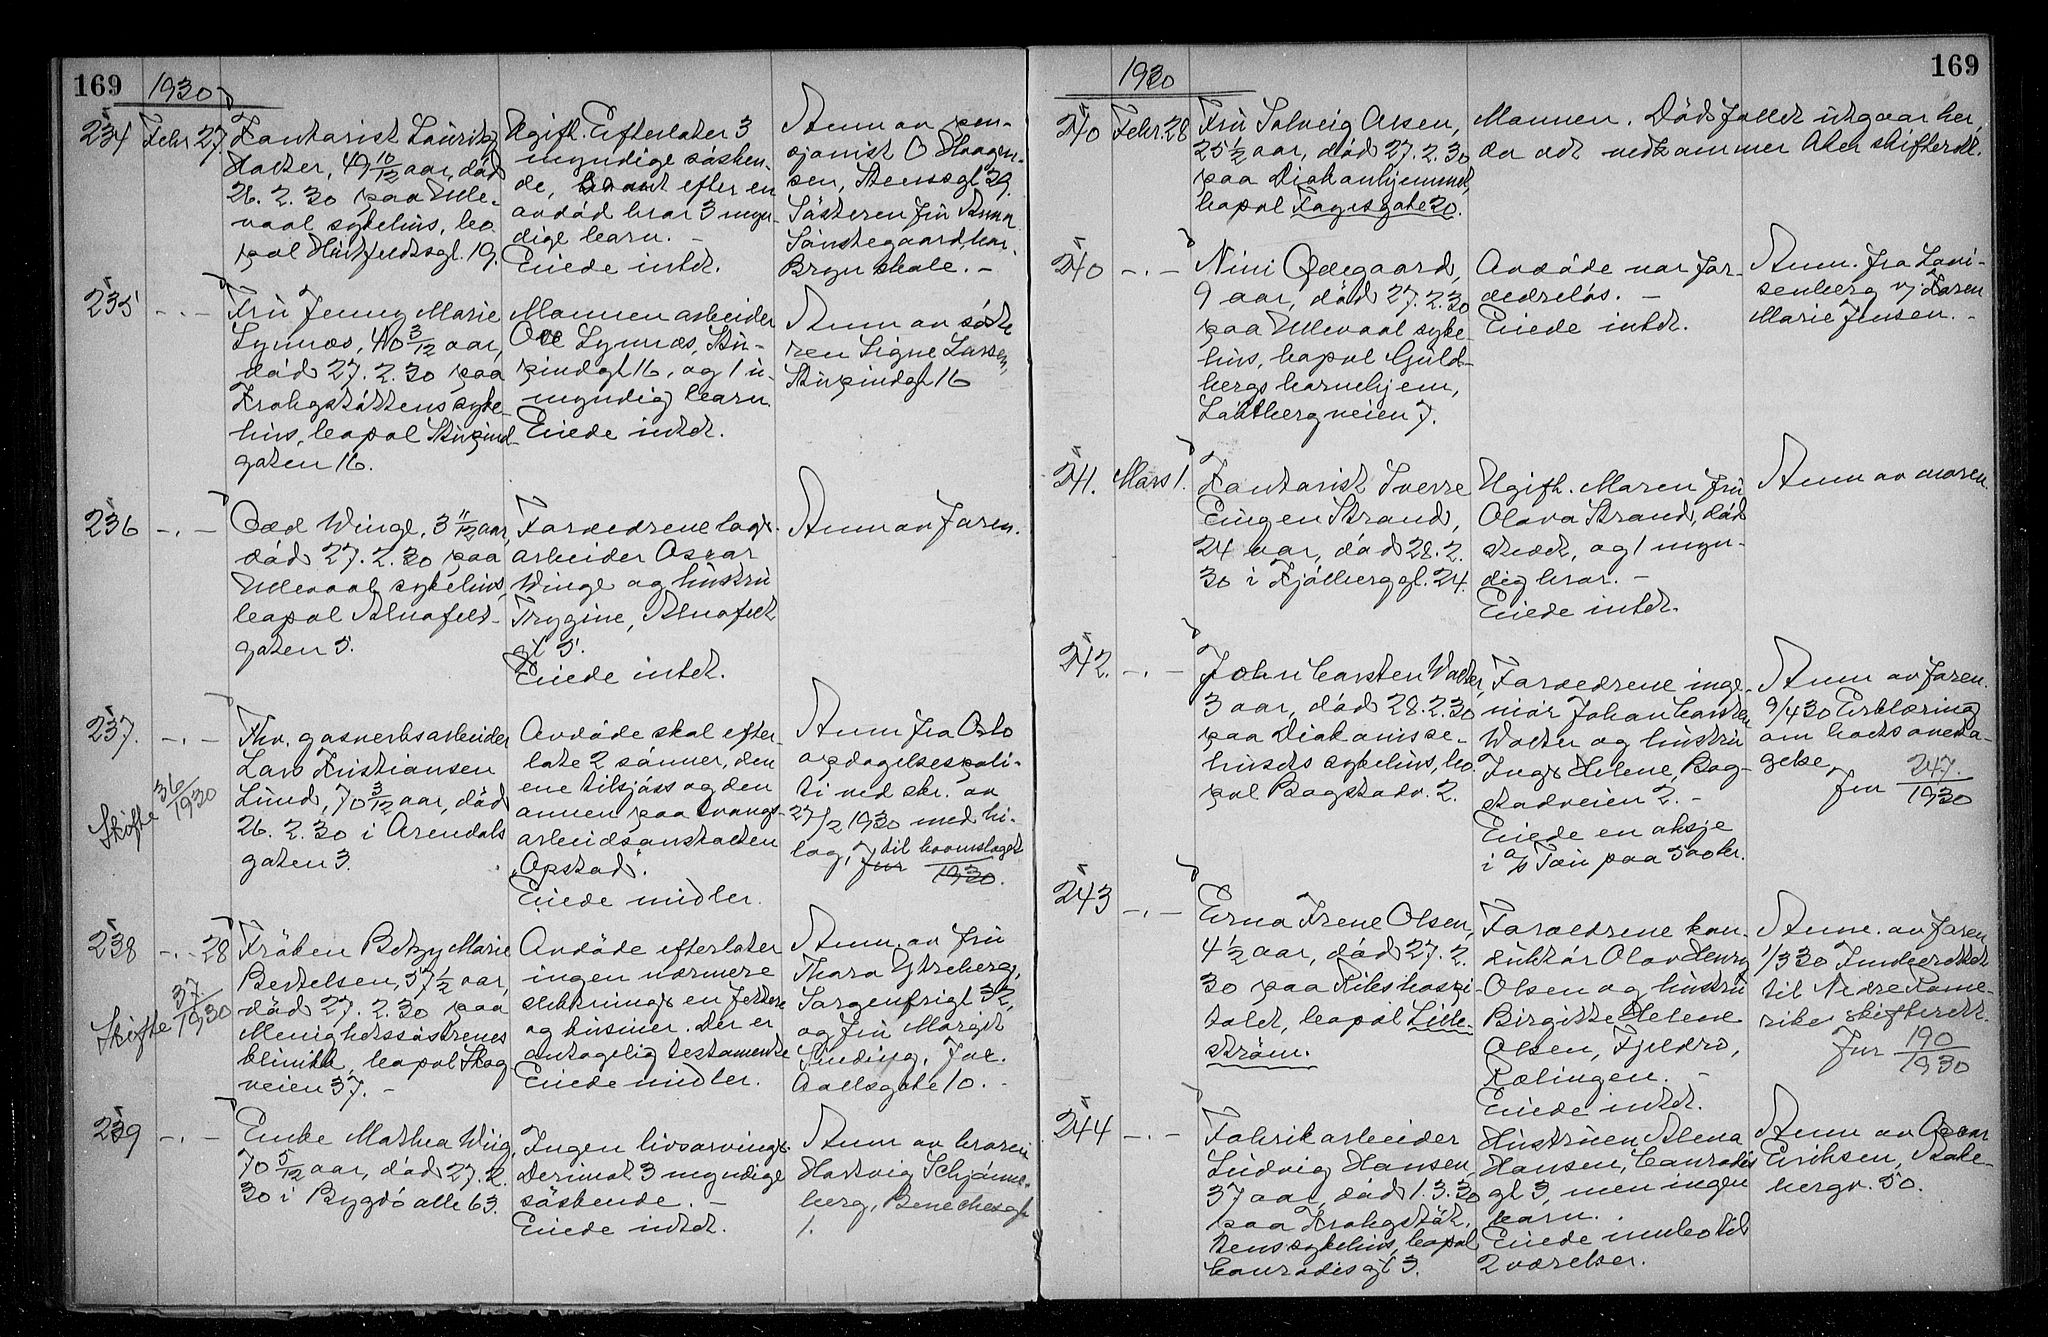 169
1930
234 Febr 27.
Kontorist Lauritz
Holter, 49 10/12 aar, död
26. 2. 30 paa Ulle-
vaal sykehus, bo-
pæl Huitfeldtsgt. 19.
Ugift. Efterlater 3
myndige sösken-
de, efter en
avdöd bror 3 myn-
dige barn. –
Eiede intet.
Anm av pen-
sjonist O Haagen-
sen, Stensgt 39.
Sösteren fru Anna
Sönstegaard, har.
Bryn skole. –
235 -.-
Fru Jenny Marie
Lynnæs, 40 3/12 aar,
död 27. 2. 30 paa
Krohgstöttens syke-
hus, bopæl Stupind-
gaten 16.
Mannen arbeider
Ole Lynnæs, Stu-
pindgt 16, og 1 u-
myndig barn.
Eiede intet.
Anm av söste
ren Signe Larsen,
Stupindgt 16
236 -.-
Odd Winge, 3 11/12 aar,
död 27. 2. 30 paa
Ullevaal sykehus,
bopæl Alnafeld-
gaten 5.
Forældrene lag.
arbeider Oscar
Winge og hustru
Trygine, Alnafeldt
gt 5.
Eiede intet.
Anm av faren.
237. -.-
Skifte 36/1930
Fhv. gasverksarbeider
Lars Kristiansen
Lund, 70 3/12 aar, död
26. 2. 30 i Arendals
gaten 3.
Avdöde skal efter-
late 2 sönner, den
ene tilsjöss og den
annen paa tvangs-
arbeidsanstalten
"Opstad".
Eiede midler.
Anm fra Oslo
opdagelsespoli-
ti ved skr. av
27/2 1930 med bi-
lag, til boomslaget
Jnr /1930.
238 -.- 28
Skifte 37/1930
Fröken Betzy Marie
Bertelsen, 57 1/2 aar,
död 27. 2. 30 paa
Menighetssöstrenes
klinikk, bopæl Skog
veien 37. –
Avdöde efterlater
ingen nærmere
slektninger en fettere
og kusiner. Der er
antagelig testamente
Eiede midler.
Anm. av fru
Thora Ytreberg,
Sorgenfrigt 32,
og fru Margit
Sinding, Jac.
Aallsgate 10. –
239 -.-
Enke Mathea Wiig,
70 5/12 aar, död 27. 2.
30 i Bygdö alle 63.
Ingen livsarvinger
derimot 3 myndige
söskende. –
Eiede intet.
Anm av broren
Hartvig Schjönne-
berg, Benechesgt
1.
169
1930
240 Febr. 28
Fru Solveig Olsen,
25 1/2 aar, död 27. 2. 30
paa Diakonhjemmet,
bopæl Fagesgate 20.
Mannen. Dödsfallet utgaar her,
da det vedkommer Aker skifterett.
240 -.-
Nini Ödegaard,
9 aar, död 27. 2. 30
paa Ullevaal syke-
hus, bopæl Guld-
bergs barnehjem,
Lahtbergveien 7.
Avdöde var for-
ældrelös. –
Eiede intet.
Anm. fra Lovi-
senberg v/ Karen
Marie Jensen. –
241. Mars 1.
Kontorist Sverre
Eugen Strand,
24 aar, död 28. 2.
30 i Kjölberggt. 24.
Ugift. Moren fru
Olava Strand, död
stedet, og 1 myn-
dig bror. –
Eiede intet.
Anm av moren.
242. -.-
John Carsten Wolter,
3 aar, död 28. 2. 30
paa Diakonisse-
husets sykehus, bo-
pæl Bogstadv. 2.
Forældrene inge-
niör Johan Carsten
Wolter og hustru
Inger Helene, Bog-
stadveien 2. –
Eiede en aksje
i a/s Tau paa 500 kr.
Anm av faren.
9/4 30 Erklæring
om boets overta-
gelse
Jnr 247./1930
243 -.-
Erna Irene Olsen,
4 1/2 aar, död 27. 2.
30 paa Rikshospi-
talet, bopæl Lille-
ström.
Forældrene kon-
duktör Olav Henry
Olsen og hustru
Birgitte Helene
Olsen, Fjeldbo,
Rælingen. –
Eiede intet.
Anm. av faren
1/3 30 Innberettet
til Nedre Rome-
rike skifterett.
Jnr 190/1930
244 -.-
Fabrikarbeider
Ludvig Hansen,
37 aar, död 1. 3. 30
paa Krohgstöt-
tens sykehus, bopæl
Conradisgt 3.
Hustruen Alma
Hansen, Conradis
gt 3, men ingen
barn. .
Eiede innbo til
2 værelser.
Anm av Oscar
Eriksen, Bake-
bergv. 50.